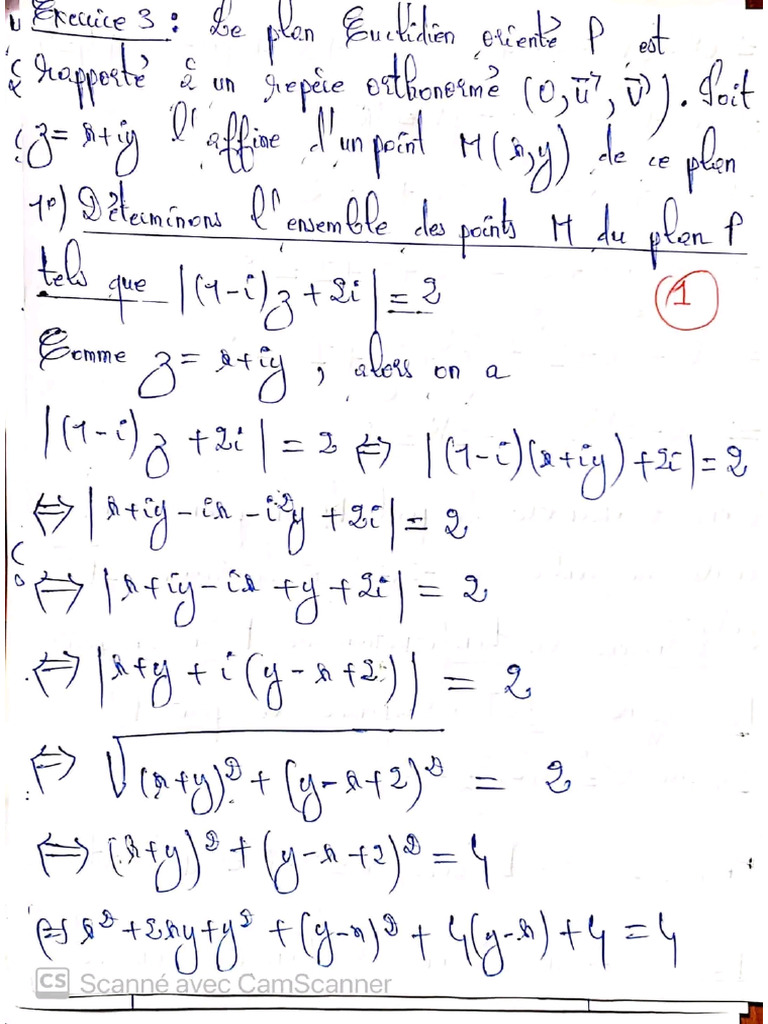 Exercice 3 : Le plan Euclidien orienté P est
rapporté à un repère orthonormé (O, u⃗, v⃗). Soit
z = x+iy l'affixe d'un point M(x,y) de ce plan
1°) Déterminons l'ensemble des points M du plan P
tels que |(1-i)z + 2i| = 2
1
Comme z = x+iy, alors on a
|(1-i)z + 2i| = 2 ⇔ |(1-i)(x+iy) + 2i| = 2
⇔ |x+iy - ix - i²y + 2i| = 2
⇔ |x+iy - ix + y + 2i| = 2
⇔ |x+y + i(y-x+2)| = 2
⇔ √((x+y)² + (y-x+2)²) = 2
⇔ (x+y)² + (y-x+2)² = 4
⇔ x² + 2xy + y² + (y-x)² + 4(y-x) + 4 = 4
CS Scanné avec CamScanner